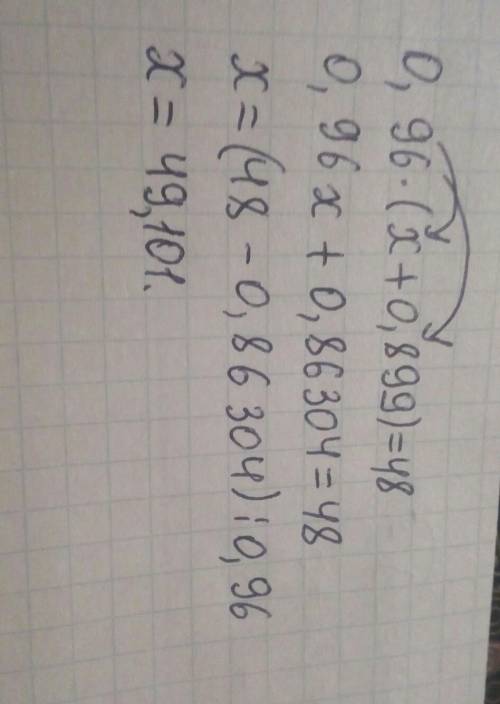 0,96·(x+0,899)=48
0,96x+0,86304=48
x=(48-0,86304):0,96
x=49,101.